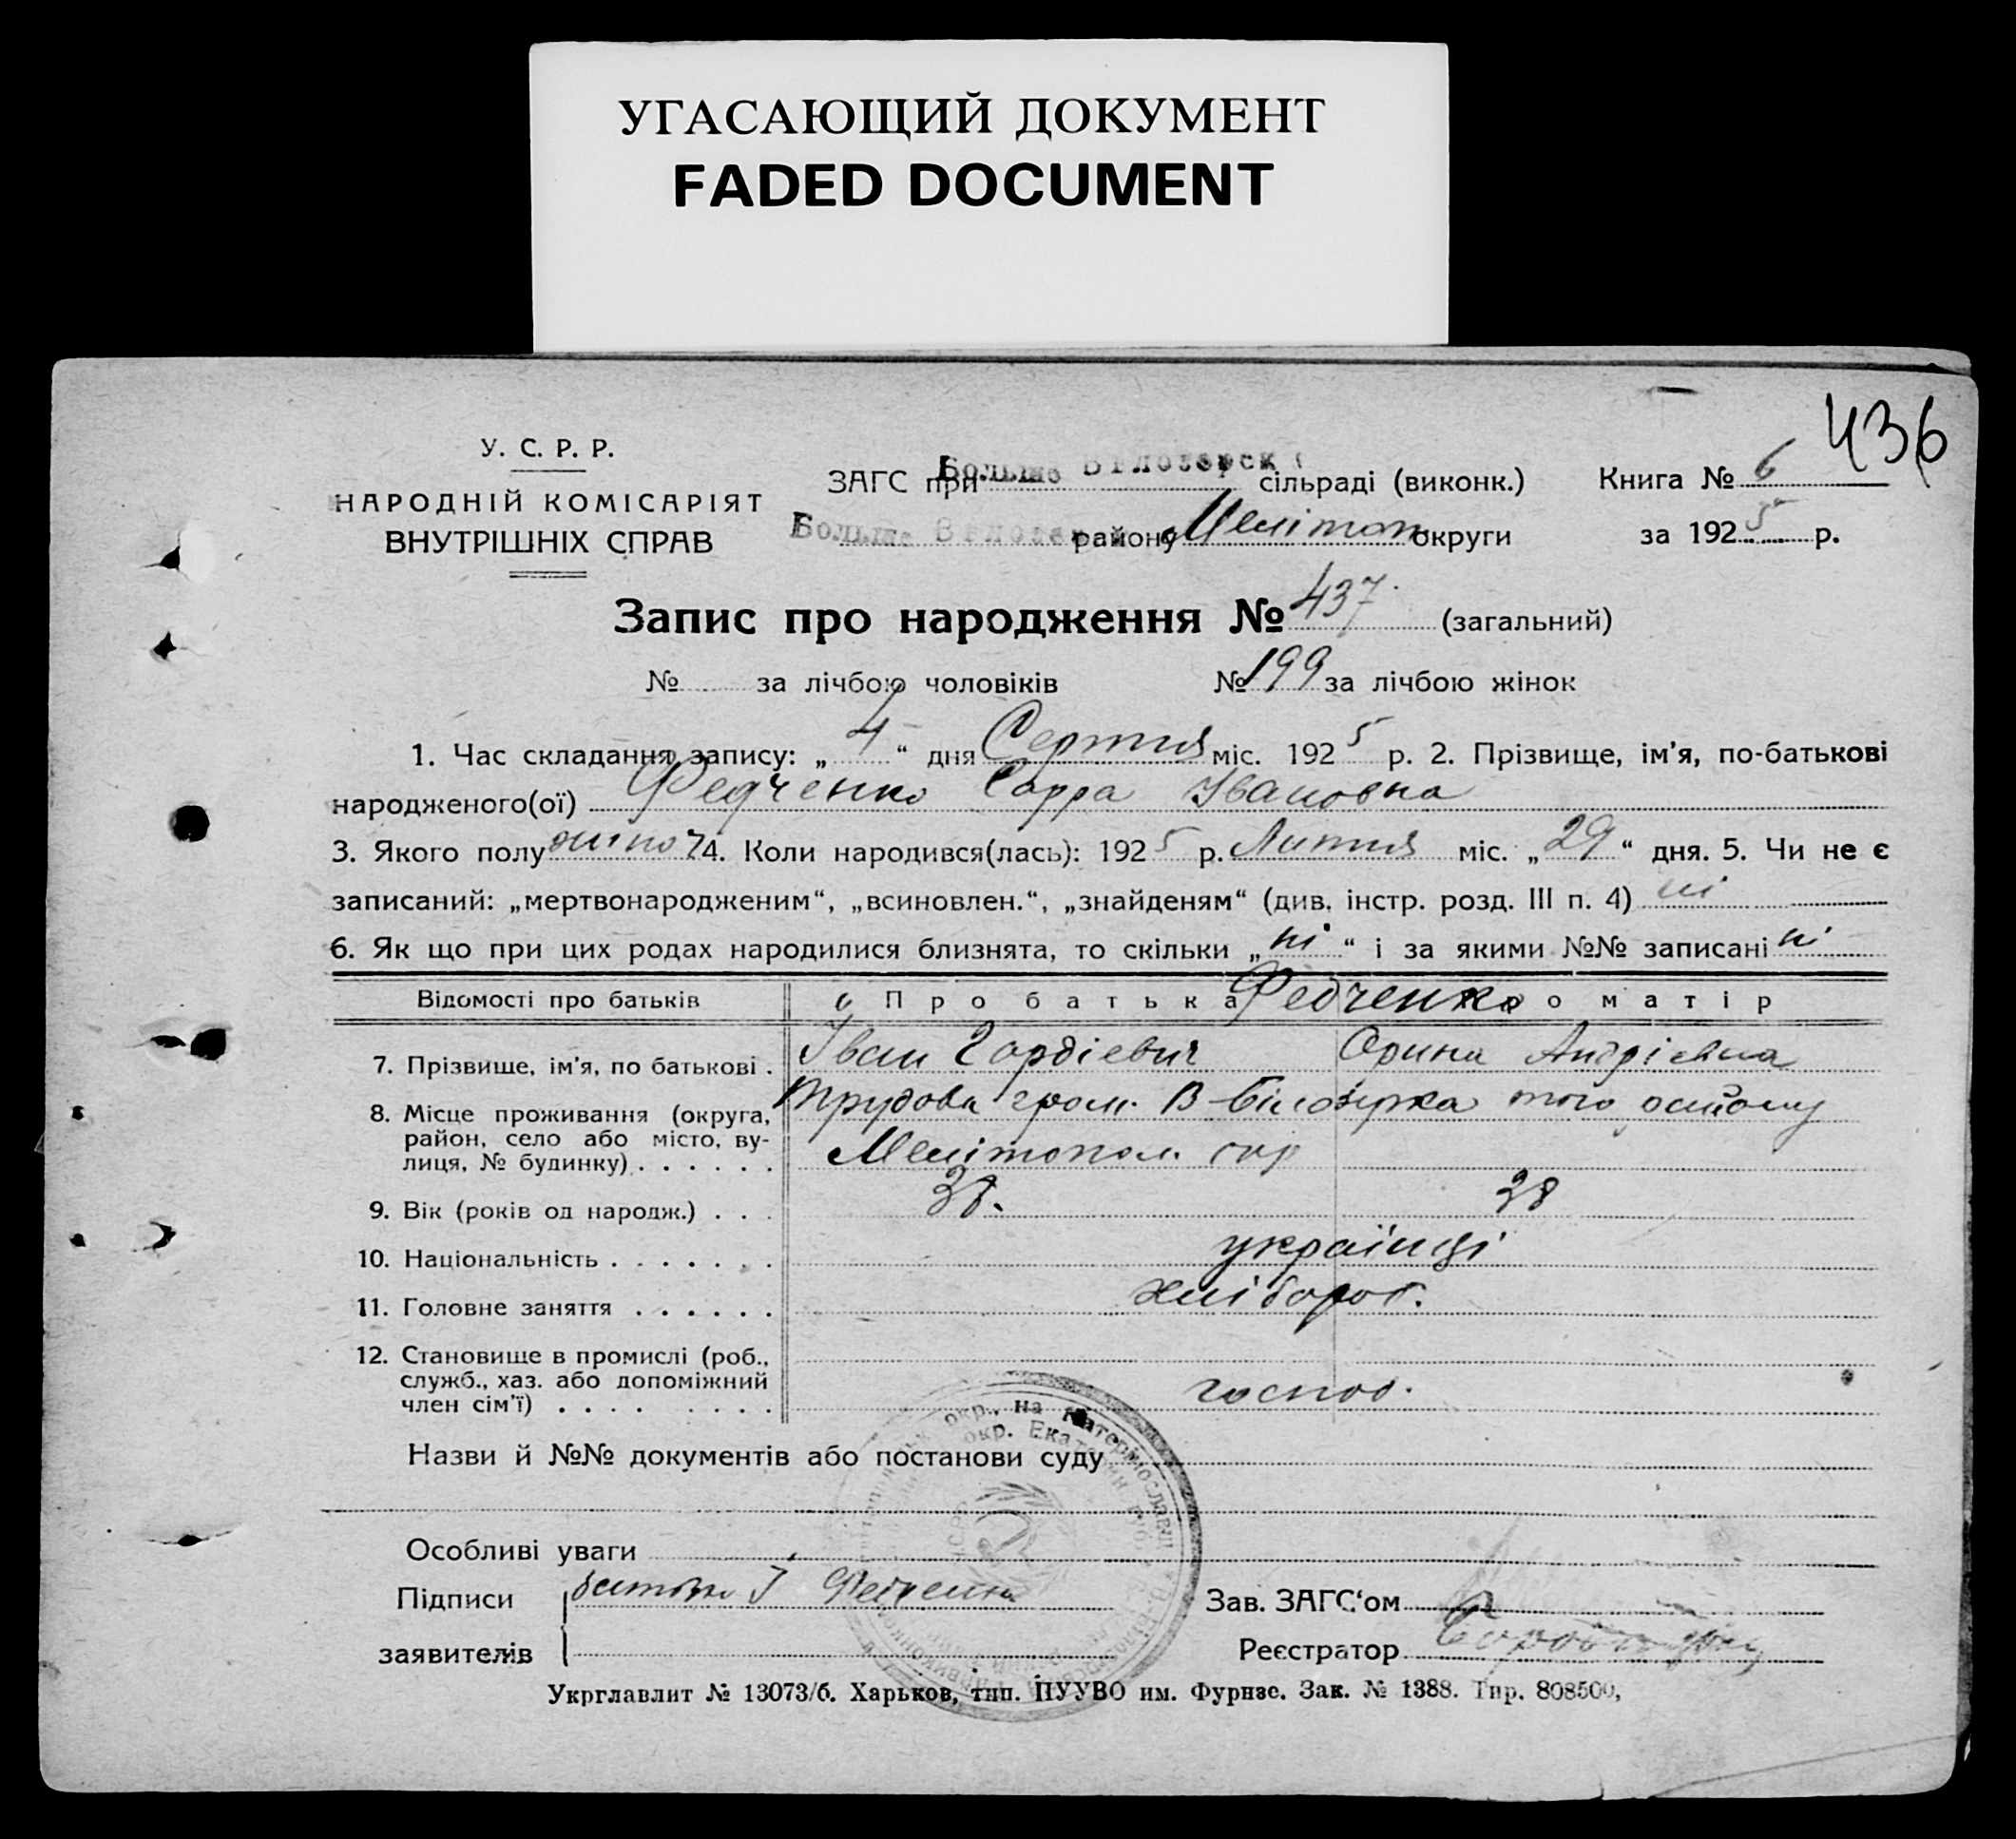 УГАСАЮЩИЙ ДОКУМЕНТ
FADED DOCUMENT
436
У. С. Р. Р.
НАРОДНІЙ КОМІСАРІЯТ
ВНУТРІШНІХ СПРАВ
ЗАГС при Больше Білозерск сільраді (виконк.) Книга № 6
Больше Білозер району Мелітоп округи за 1925 р.
Запис про народження № 437. (загальний)
№ за лічбою чоловіків № 199 за лічбою жінок
1. Час складання запису: „4“ дня Серпня міс. 1925 р. 2. Прізвище, ім'я, по-батькові
народженого(ої) Федченко Сарра Івановна
3. Якого полу жіноч 4. Коли народився(лась): 1925 р. Липня міс. „29“ дня. 5. Чи не є
записаний: „мертвонародженим“, „всиновлен.“, „знайденям“ (див. інстр. розд. III п. 4) ні
6. Як що при цих родах народилися близнята, то скільки „ні“ і за якими №№ записані ні
Відомості про батьків Про батька Федченко Про матір
7. Прізвище, ім'я, по батькові . Іван Гордієвич Орина Андрієвна
8. Місце проживання (округа, Трудова гром. В-Білозерка того району
район, село або місто, ву-
лиця, № будинку) . . . . . . Мелітопол. окр
9. Вік (років од народж.) . . . 38. 38
10. Національність . . . . . . . українці
11. Головне заняття . . . . . . хлібороб.
12. Становище в промислі (роб.,
служб., хаз. або допоміжний
член сім'ї) . . . . . . . . . господ.
Назви й №№ документів або постанови суду
Особливі уваги
Підписи батько І Федченко Зав. ЗАГС'ом
заявителів Реєстратор
Укрглавлит № 13073/б. Харьков, тип. ПУУВО им. Фурнзе. Зак. № 1388. Тир. 808500,